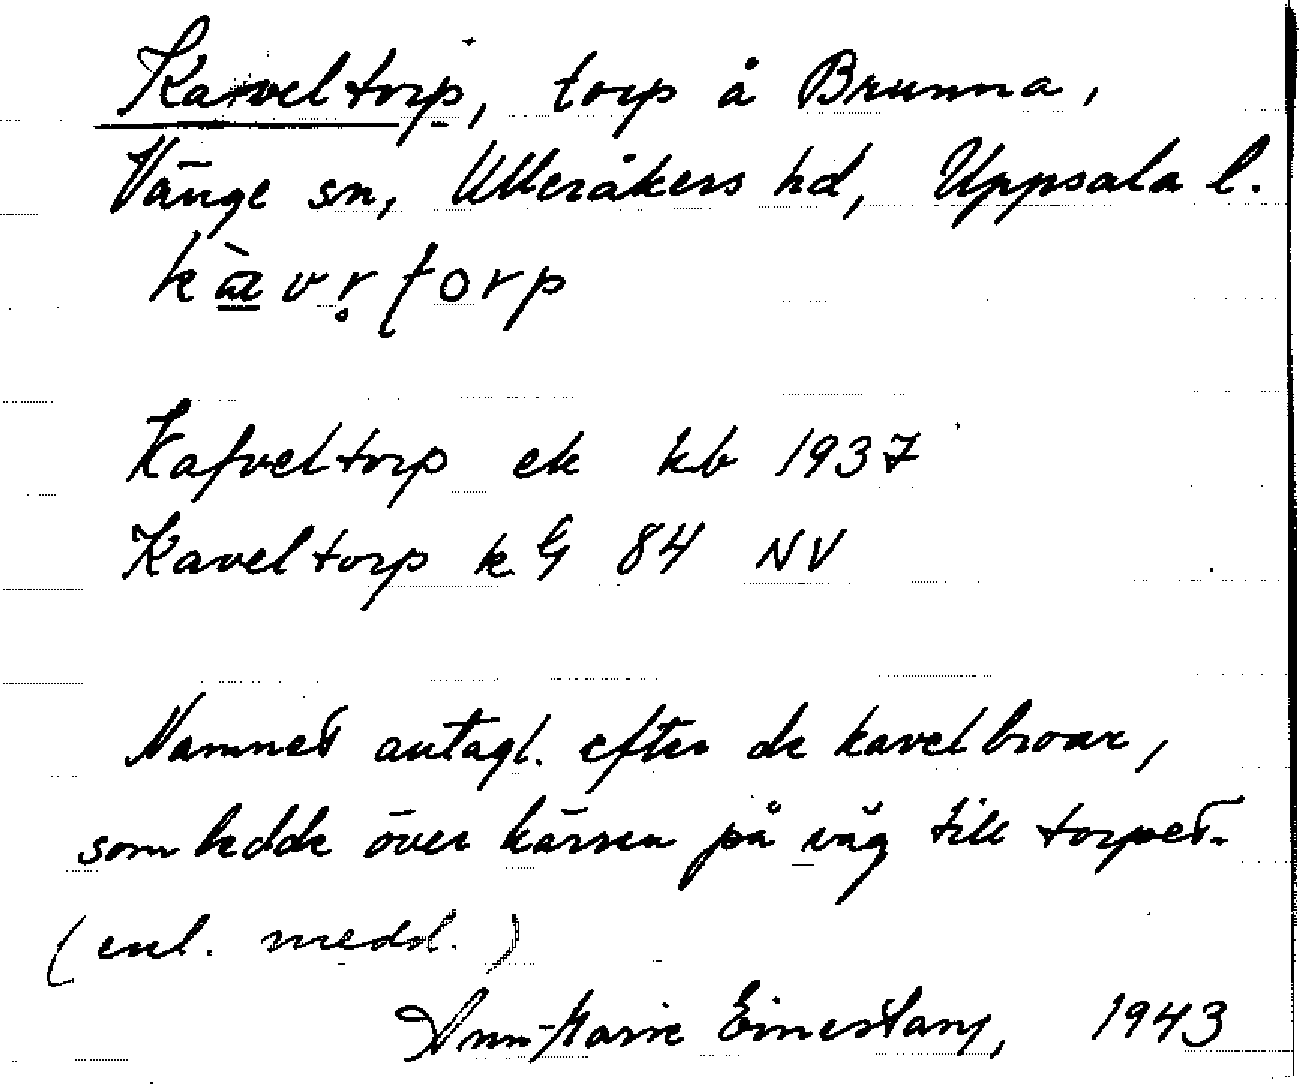 Kaveltorp, torp å Brunna,
Vänge sn, Ulleråkers hd, Uppsala l.
kæ̀vr̥torp
Kafveltorp ek kb 1937
Kaveltorp k G 84 NV
Namnet antagl. efter de kavelbroar,
som ledde över kärren på väg till torpet.
(enl. medd.)
Ann-Marie 1943